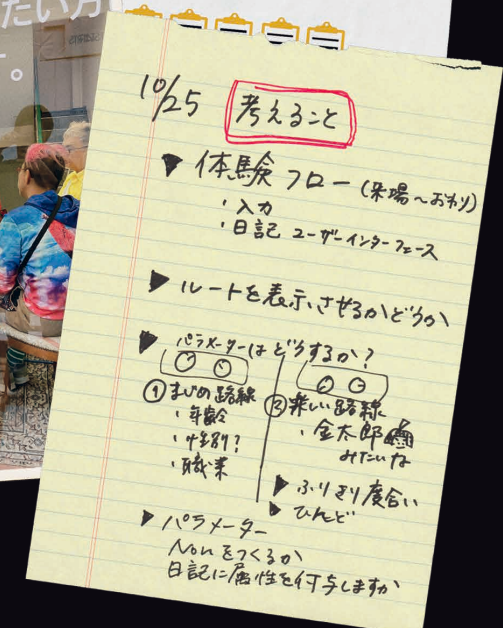 たい方
す。
10/25 考えること
▶ 体験フロー(来場〜おわり)
・入力
・日記 ユーザーインターフェース
▶ ルートを表示させるかどうか
▶ パラメーターはどうするか?
① まじめ路線
・年齢
・性別?
・職業
② 楽しい路線
・金太郎
みたいな
▶ ふりきり度合い
▶ ひんど
▶ パラメーター
Nonをつくるか
日記に属性を付与しますか